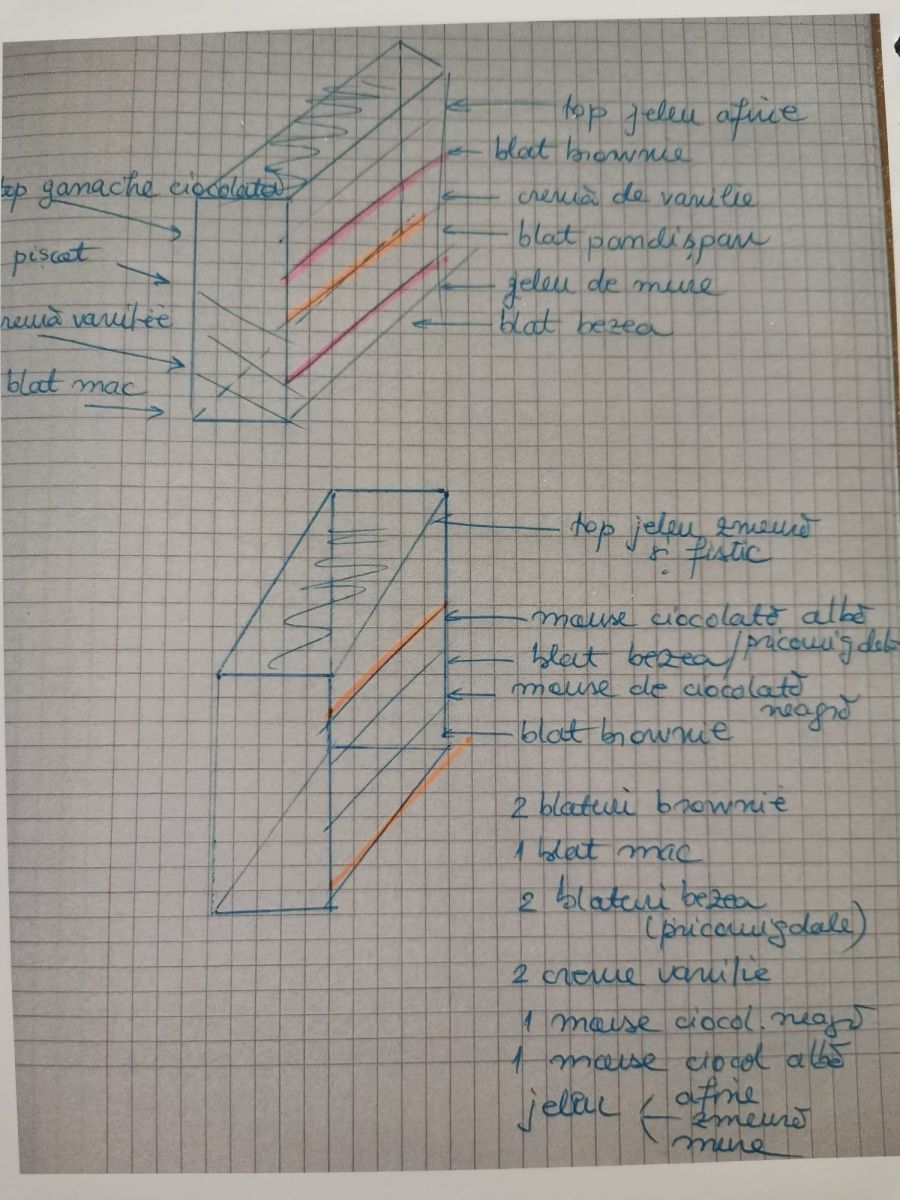 top jeleu afine
blat brownie
cremă de vanilie
blat pandișpan
jeleu de mure
blat bezea
top ganache ciocolată
pișcot
cremă vanilie
blat mac
top jeleu zmeură
și fistic
mousse ciocolată albă
blat bezea/pricomigdale
mousse de ciocolată
neagră
blat brownie
2 blaturi brownie
1 blat mac
2 blaturi bezea
(pricomigdale)
2 creme vanilie
1 mousse ciocol. neagră
1 mousse ciocol albă
jeleu
afine
zmeură
mure